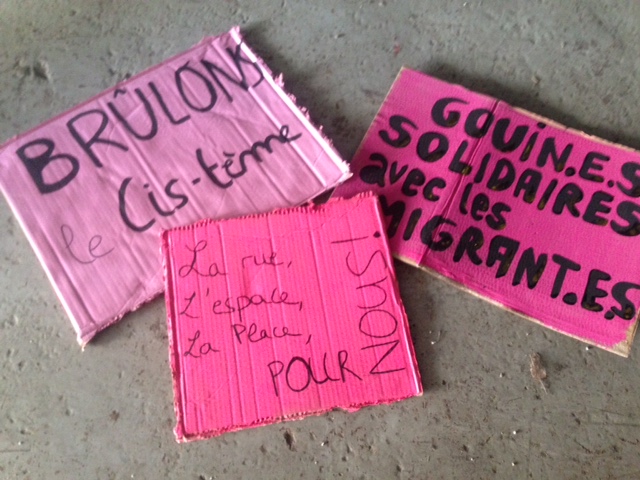 BRÛLONS
le Cis-tème
GOUIN.E.S
SOLIDAIRES
avec les
MIGRANT.ES
La rue,
L'espace,
La Place,
POUR
NOUS!